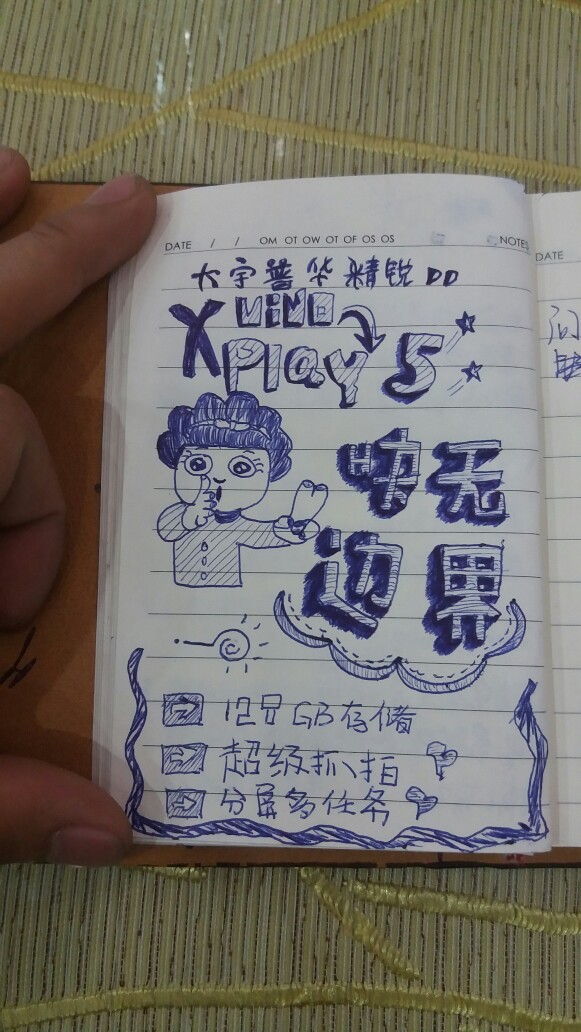 DATE / / OM OT OW OT OF OS OS NOTES
大宇普华精锐DD
vivo
X Play 5
快无
边界
128GB存储
超级抓拍
分屏多任务
DATE
问